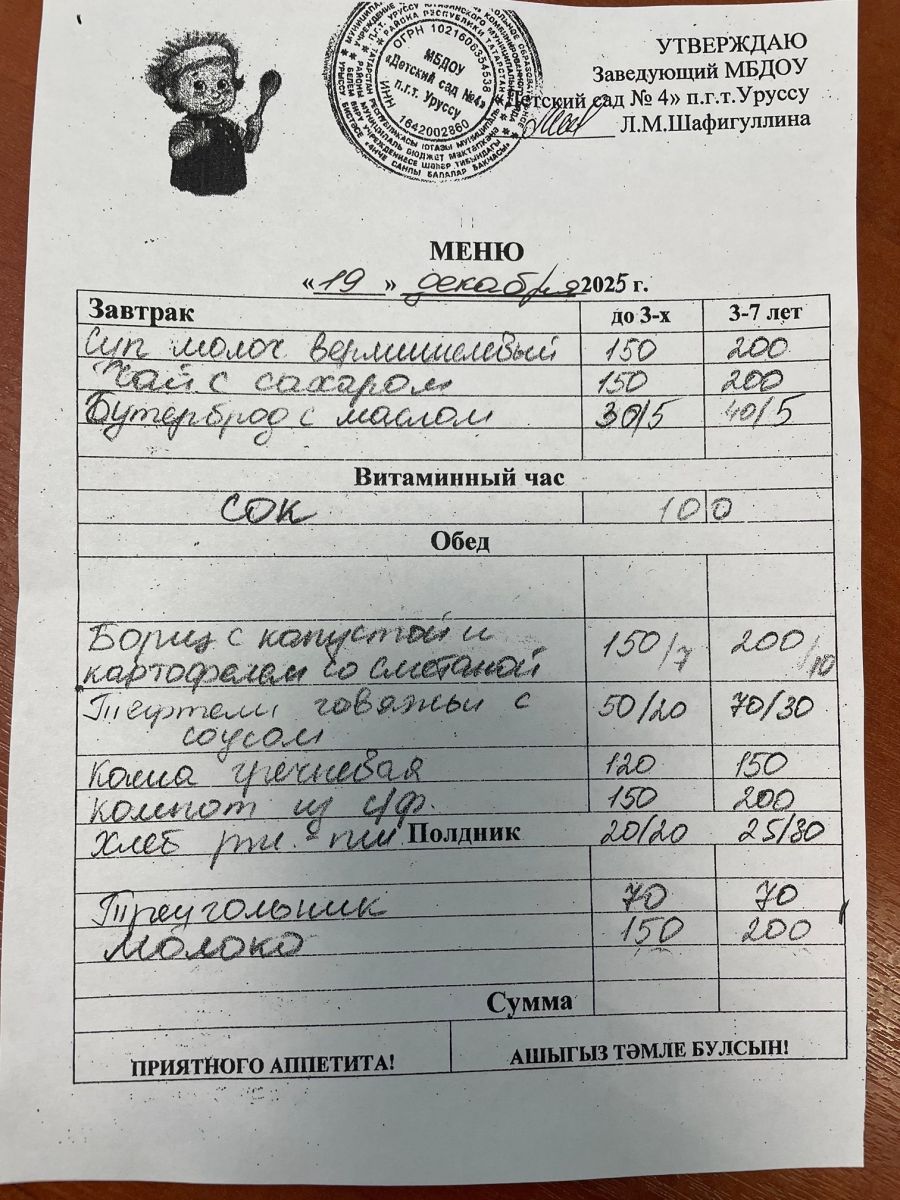 МБДОУ
«Детский сад №4»
п.г.т. Уруссу
ОГРН 1021606354538
ИНН 1642002860
УТВЕРЖДАЮ
Заведующий МБДОУ
«Детский сад № 4» п.г.т.Уруссу
Л.М.Шафигуллина
МЕНЮ
«19» декабря 2025 г.
Завтрак до 3-х 3-7 лет
Суп молоч вермишелевый 150 200
Чай с сахаром 150 200
Бутерброд с маслом 30/5 40/5
Витаминный час
сок 100
Обед
Борщ с капустой и
картофелем со сметаной 150/7 200/10
Тефтели говяжьи с
соусом 50/20 70/30
Каша гречневая 120 150
компот из с/ф. 150 200
хлеб рж. - пш Полдник 20/20 25/30
Треугольник 70 70
молоко 150 200
Сумма
ПРИЯТНОГО АППЕТИТА! АШЫГЫЗ ТӘМЛЕ БУЛСЫН!